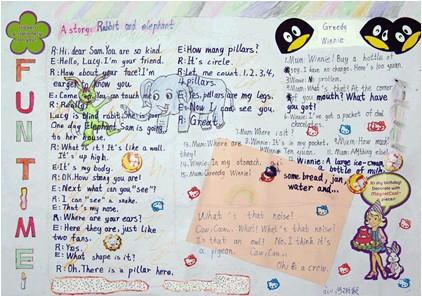 FUN TIME!
A story: Rabbit and elephant
R: Hi, dear Sam. You are so kind.
E: Hello, Lucy. I'm your friend.
R: How about your face? I'm
E: Come You can touch
R: Really?
Lucy is blind rabbit. She is poor.
One day Elephant Sam is going
to her house.
R: What's it? It's like a wall.
It's up high.
E: It's my body.
R: Oh. How strong you are!
E: Next what can you "see"?
R: I can "see" a snake.
E: That's my nose.
R: Where are your ears?
E: Here they are, just like
two fans.
R: Yes.
E: What shape is it?
R: Oh, There is a pillar here.
E: How many pillars?
R: It's circle.
R: Let me count. 1.2.3.4,
4 pillars.
E: Yes, pillars are my legs.
E: Now I can see you.
R: Great.
Greedy
Winnie
Mum: Winnie! Buy a bottle of
I have no change. Here's
Winnie: No problem.
Mum: What's that! At the corner
of your mouth? What have
you got!
Winnie: I've got a packet of
chocolates.
Mum: Where is it?
Mum: Where are Winnie: It's in my pocket.
Winnie: Ten yuan.
Winnie: In my stomach.
Mum: Greedy Winnie!
Mum: How much
Mum: Anything else?
Winnie: A large ice-cream,
a bottle of milk,
some bread, jam
water and...
What's that noise?
Caw. Caw... What! What's that noise?
Is that an owl? No. I think it's
a pigeon. Caw. Caw...
Oh! a crow.
It's my birthday!